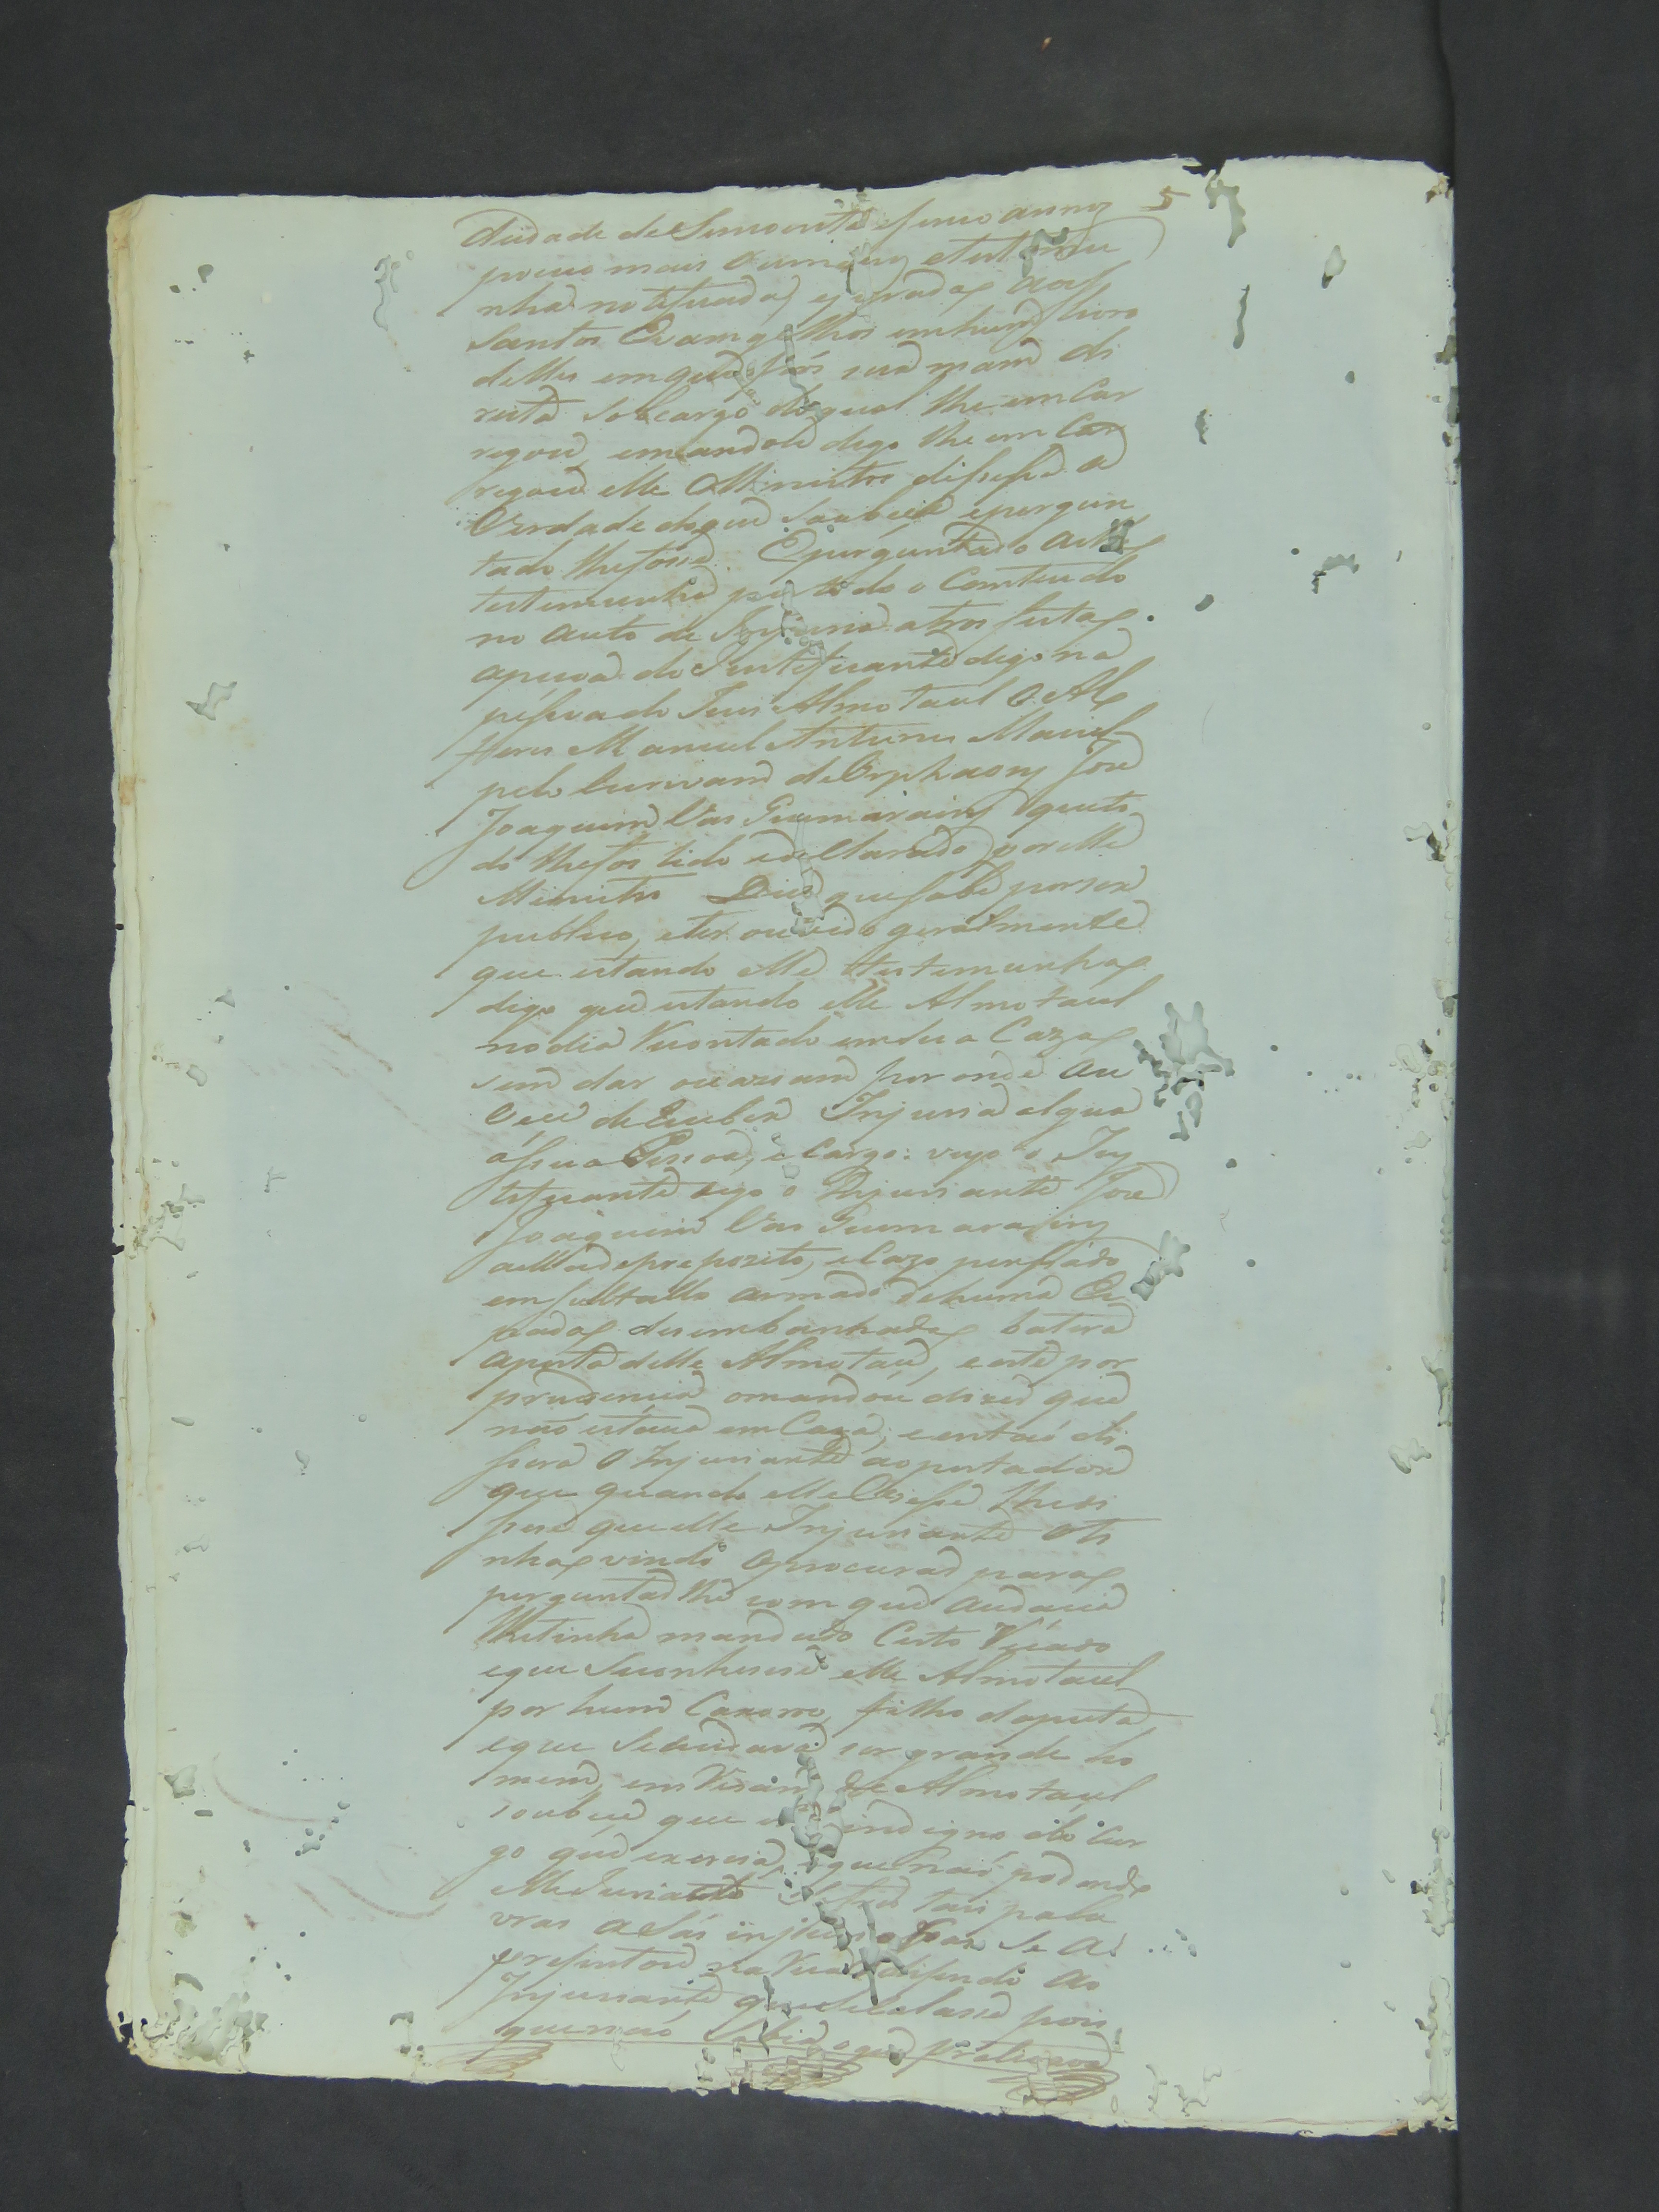 5
de idade de Sincoenta e sinco annos
pouco mais ou menos testemu
nha notificada, e jurada aos
Santos Evamgelhos em hum Livro
delles em que pos sua mam di
reita sob cargo do qual lhe em Car
regou, emandou digo lhe em Car
regou elle Ministro dissesse a
Verdade do que soubece e pergun
tado lhe fosse. E perguntado a elle
testemunha por todo o Comteudo
no auto de Injuria atros feita
apecoa do Justeficante digo na
pessoa do Juis Almotacel o Al
feres Manuel Antunes Maciel
pelo Escrivam de Orphaons José
Joaquim Vas Guimarains que to
do lhe foi lido e declarado por elle
Ministro Dice que sabe por ser
publico, e ter ouvido geralmente
que estando elle testemunha
digo que estando elle Almotacel
no dia Recontado em sua Caza
sem dar ocaziam por onde ou
vece de Receber Injuria algua
á sua Pessoa, e Cargo: veyo o Jus
teficante digo o Injuriante José
Joaquim Vas Guimarains
de preposito, e Cazo penssado
emsultallo armado de huma Es
pada desembanhada batera
aporta delle Almotacel, e este por
prudencia o mandou dizer que
não estava em Caza; e então di
sera o Injuriante ao portador
que quando elle viesse lhe di
sese que elle Injuriante o ti
nha vindo a procurar para
perguntar lhe com que audacia
lhe tinha mandado Certo Recado
e que Reconhecia elle Almotacel
por hum Caxorro, filho da puta,
e que se cuidava ser grande ho
mem, em Rezam de Almotacel
soubece que era indigno do Car
go que exercia, e que não podendo
elle tais pala
vras a Sás injuriozas se a
prezentou na Rua dizendo ao
Injuriante que se calasse pois
que não Sabia o que praticava